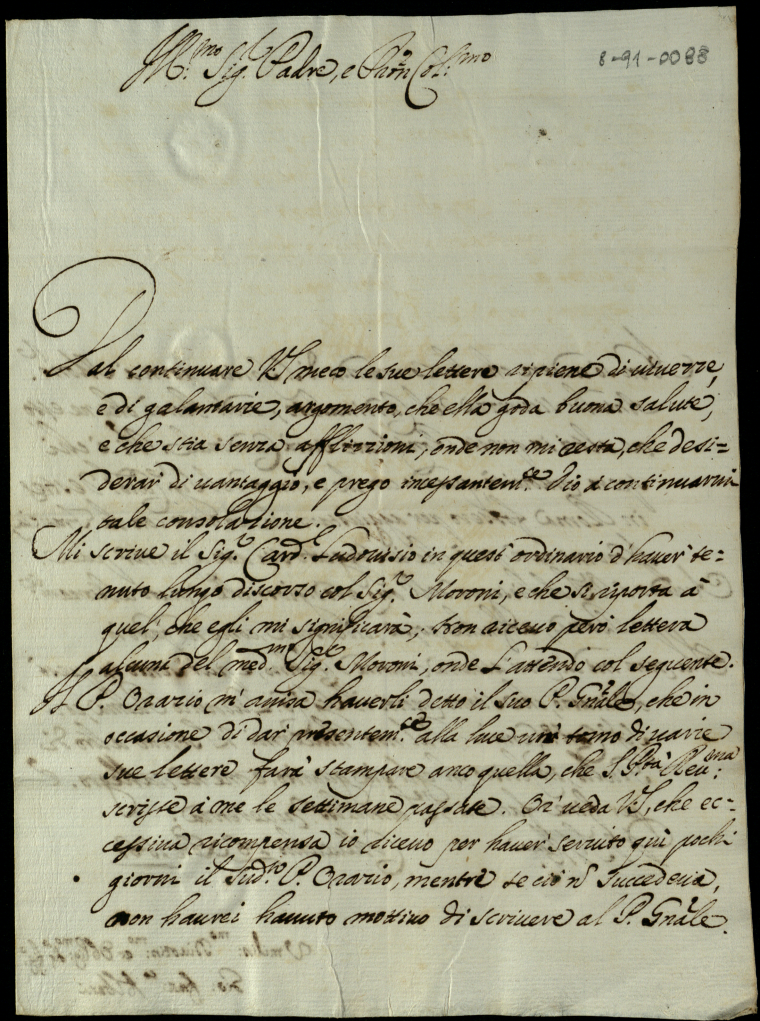 8-91-0088
Ill.mo Sig.r Padre, e Pron Col.mo
Dal continuare V.S. meco le sue lettere ripiene di viuezze,
e di galantarie, argomento, che ella goda buona salute,
e che stia senza afflizzioni, onde non mi resta, che desi=
derar di uantaggio, e prego incessantem.te Dio a continuarmi
tale consolazione.
Mi scriue il Sig.r Card.l Ludouisio in quest' ordinario d'hauer te=
nuto lungo discorso col Sig.r Moroni, e che si riporta à
quel, che egli mi significarà; Non riceuo però lettera
alcuna del med.mo Sig.r Moroni, onde l'attendo col seguente.
Il P. Orazio m'auisa hauerli detto il suo P. Gnāle, che in
occasione di dar presentem.te alla luce un tomo di uarie
sue lettere farà stampare anco quella, che S. P.tà Reu.ma
scrisse à me le settimane passate. Or ueda V.S., che ec=
cessiua ricompensa io riceuo per hauer seruito quì pochi
giorni il sud.to P. Orazio, mentre se ciò nō succedeua,
non haurei hauuto mottiuo di scriuere al P. Gnāle.